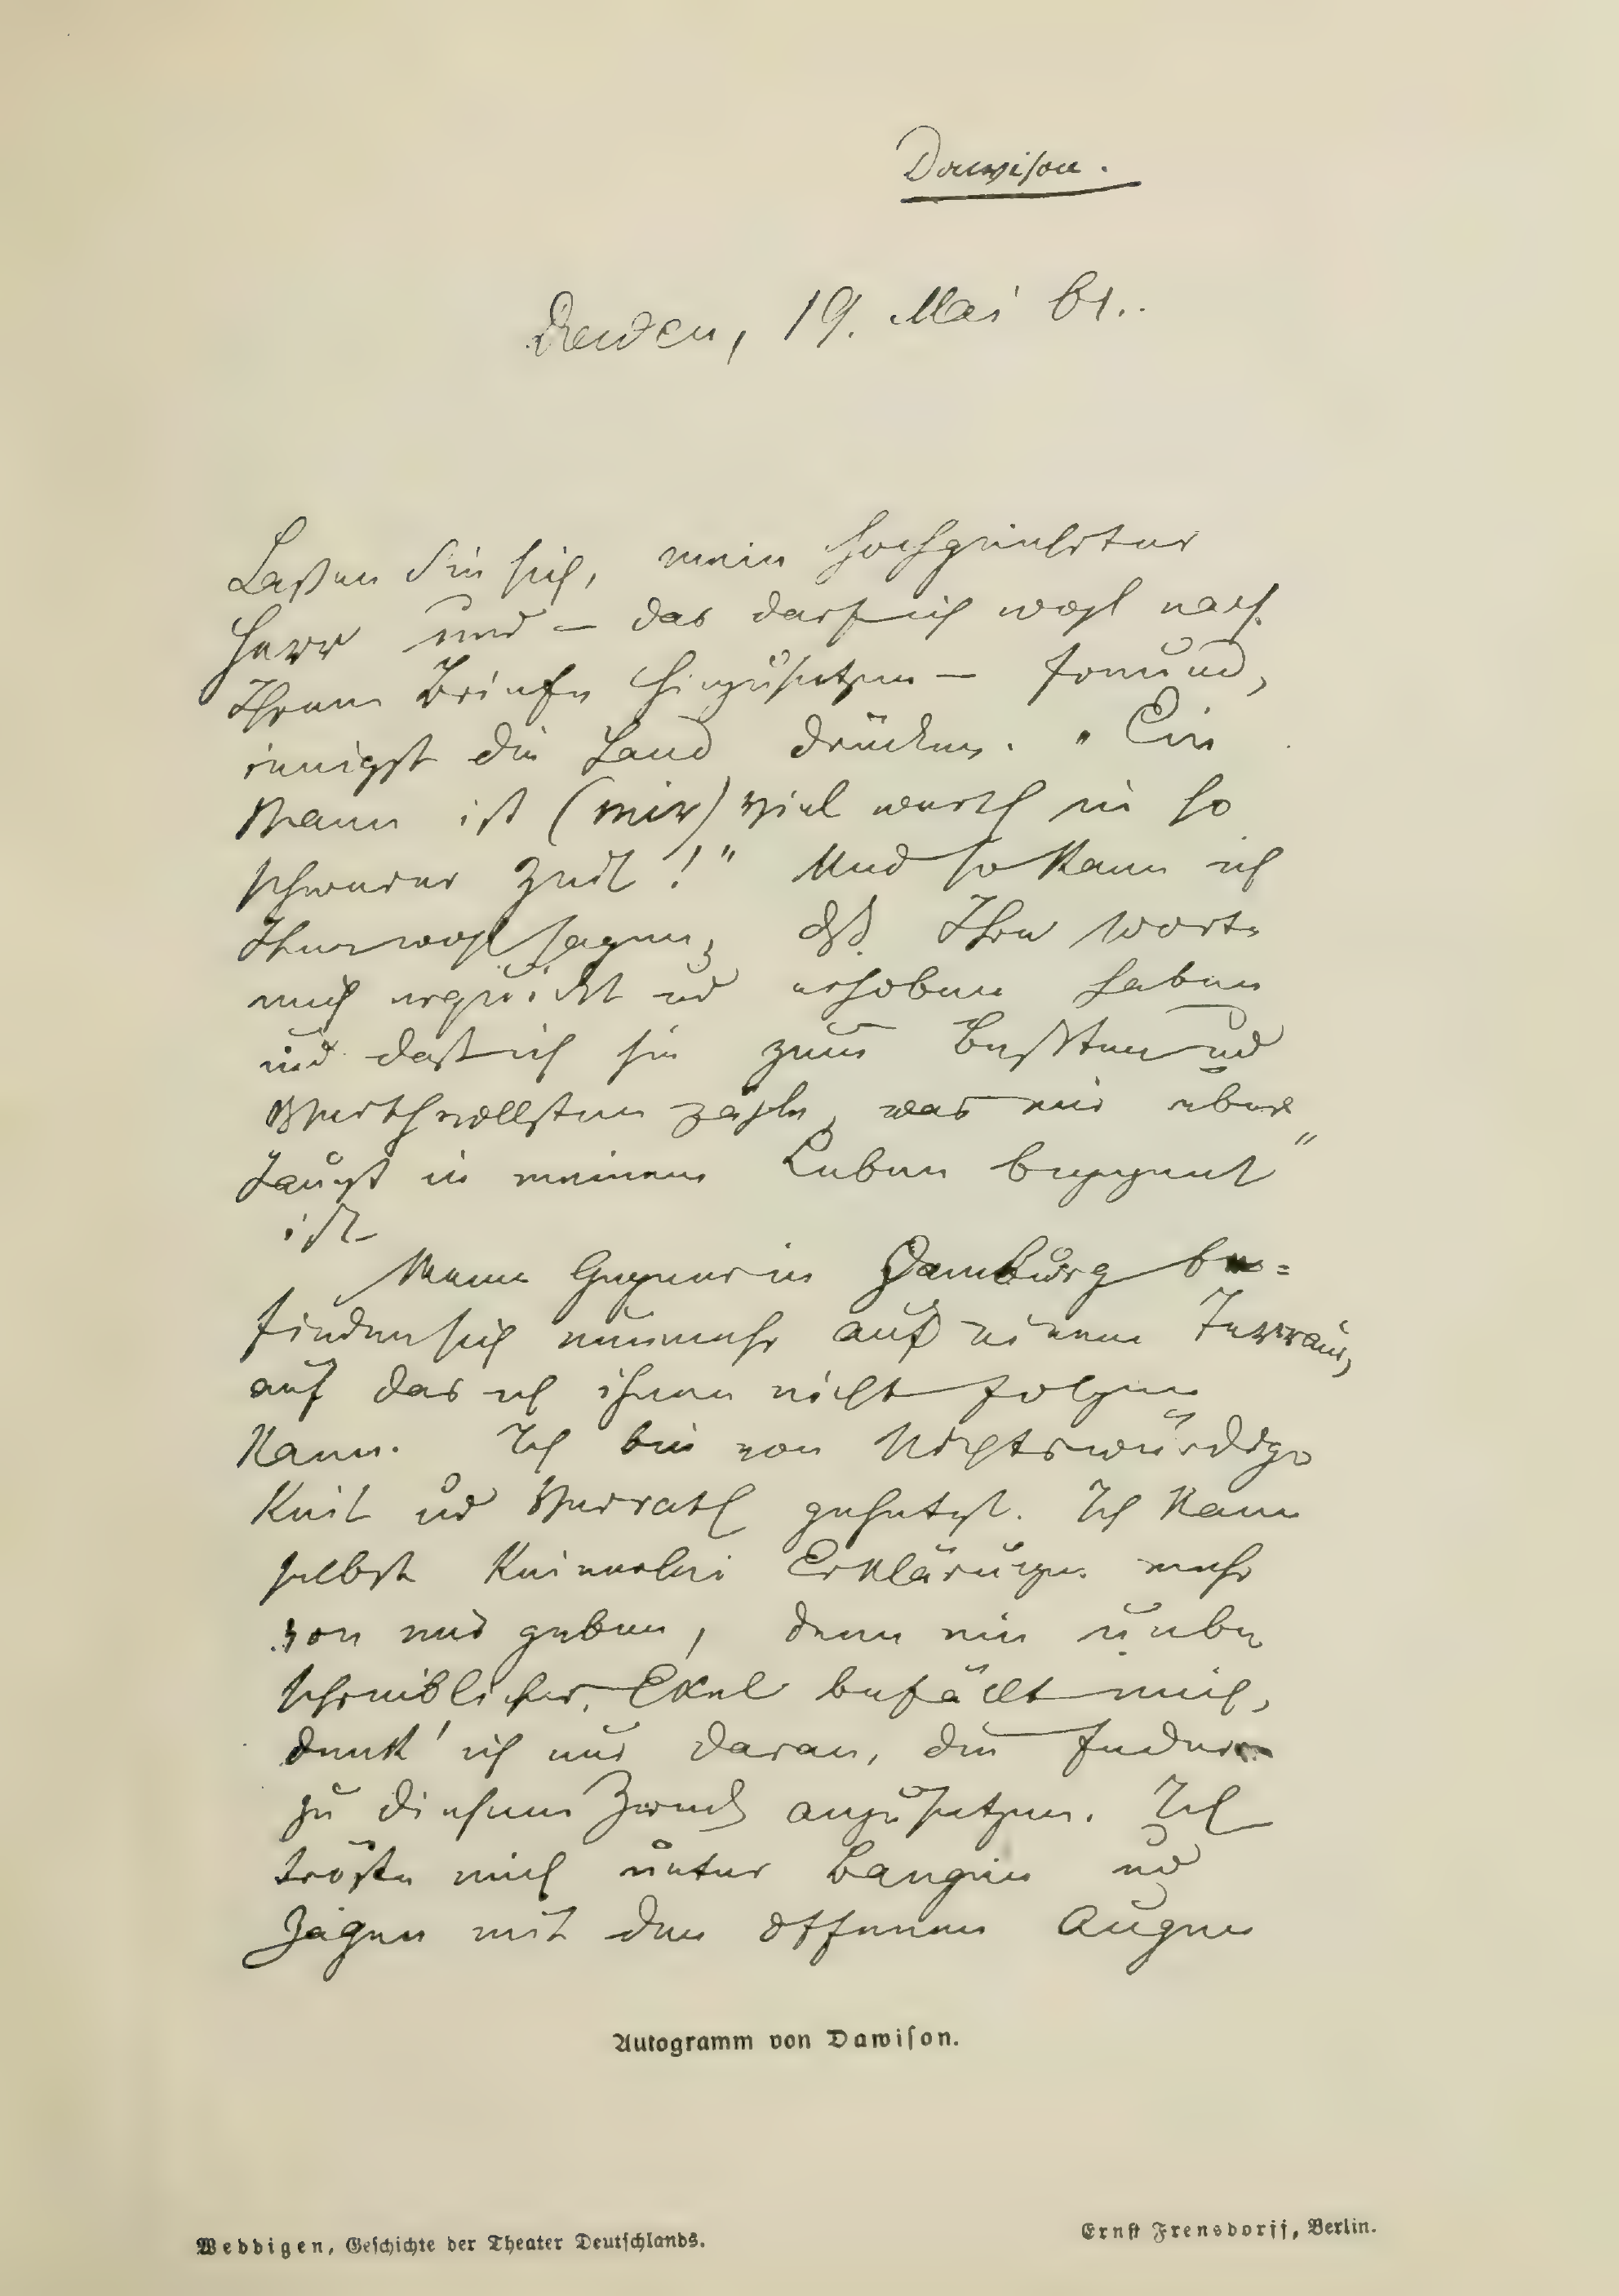 Dawison.
Dresden, 19. Mai 61.
Laßen Sie sich, mein hochgeehrter
Herr und – das darf ich wohl nach
Ihrem Briefe hinzusetzen – Freund,
innigst die Hand drücken. „Ein
Mann ist (mir) viel werth in so
schwerer Zeit!" Und so kann ich
Ihnen wohl sagen, dß Ihre Worte
mich erquickt und erhoben haben
und daß ich sie zum Besten und
Werthvollsten zähle, was mir über"
haupt in meinem Leben begegnet
ist
Meine Gegner in Hamburg be=
finden sich nunmehr auf einem Terrain,
auf das ich ihnen nicht folgen
kann. Ich bin von Nichtswürdig
keit und Verrath gehetzt. Ich kann
selbst keinerlei Erklärungen mehr
von mir geben, denn ein unbe
schreiblicher Ekel befällt mich,
denk' ich nur daran, die Feder
zu diesem Zweck anzusetzen. Ich
tröste mich unter Bangen und
Zagen mit den offenen Augen
Autogramm von Dawison.
Weddigen, Geschichte der Theater Deutschlands.
Ernst Frensdorff, Berlin.